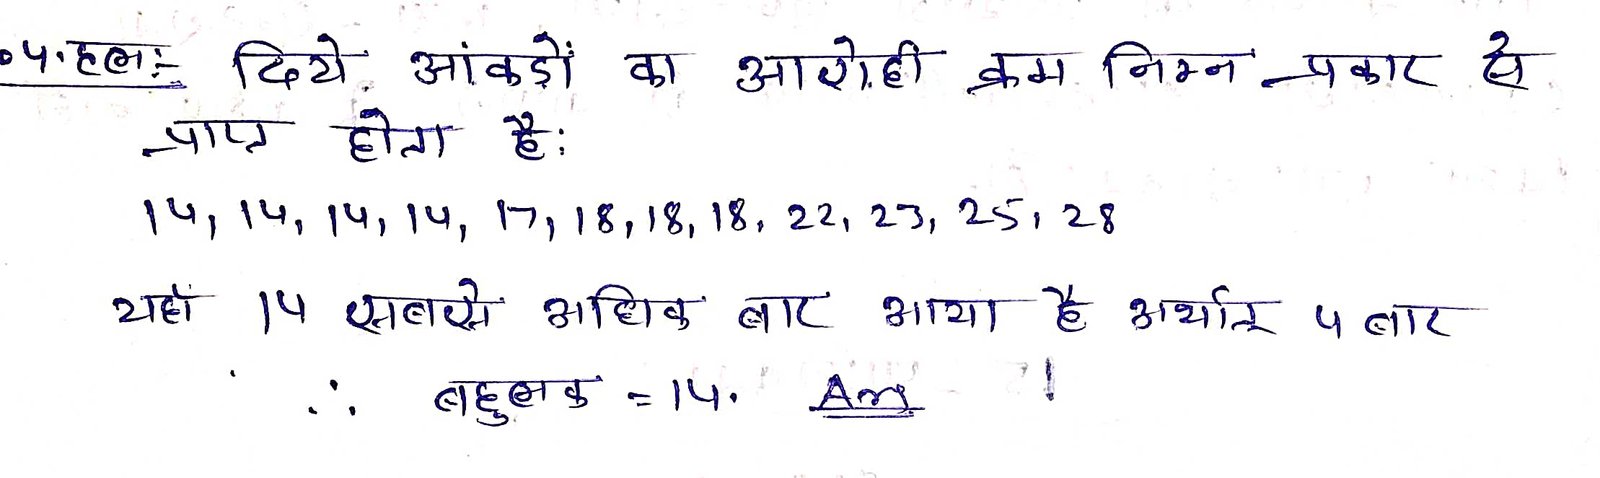 4. हल:- दिये आंकड़ों का आरोही क्रम निम्न प्रकार से
प्राप्त होता है:
14, 14, 14, 14, 17, 18, 18, 18, 22, 23, 25, 28
यहाँ 14 सबसे अधिक बार आया है अर्थात् 4 बार
∴ बहुलक = 14. Ans